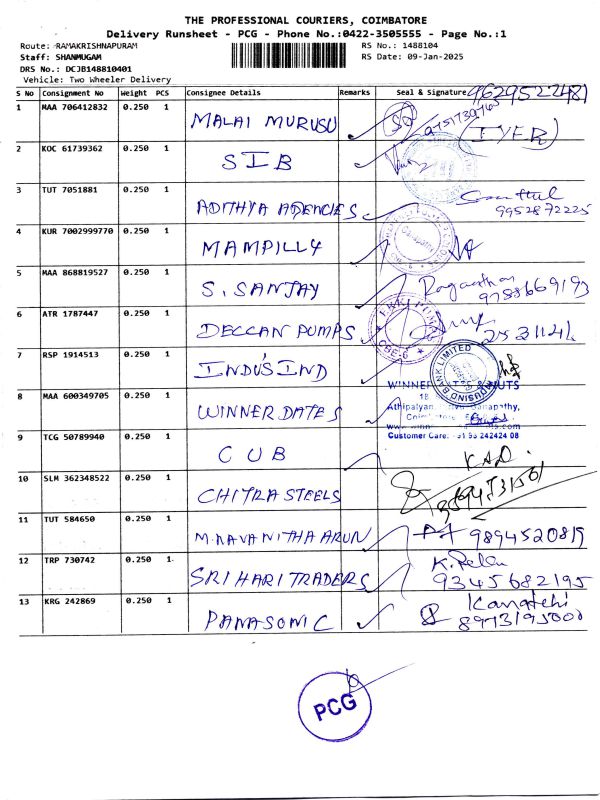 THE PROFESSIONAL COURIERS, COIMBATORE
Delivery Runsheet - PCG - Phone No.:0422-3505555 - Page No.:1
Route: RAMAKRISHNAPURAM
RS No.: 1488104
Staff: SHANMUGAM
RS Date: 09-Jan-2025
DRS No.: DCJB148810401
Vehicle: Two Wheeler Delivery
S No Consignment No Weight PCS Consignee Details Remarks Seal & Signature 9629522481
1 MAA 706412832 0.250 1 MALAI MURUSU (IYER)
2 KOC 61739362 0.250 1 SIB
3 TUT 7051881 0.250 1 ADITHYA AGENCIES 9952872225
4 KUR 7002999770 0.250 1 MAMPILLY
5 MAA 868819527 0.250 1 S. SANJAY 9788669193
6 ATR 1787447 0.250 1 DECCAN PUMPS
7 RSP 1914513 0.250 1 INDUSIND BANK LIMITED
8 MAA 600349705 0.250 1 WINNER DATES
WINNER DATES & NUTS
Customer Care: +91 95 242424 08
9 TCG 50789940 0.250 1 CUB
10 SLM 362348522 0.250 1 CHITRA STEELS
11 TUT 584650 0.250 1 M. RAVANITHA ARUN 9894520819
12 TRP 730742 0.250 1 SRI HARI TRADERS 9345682195
13 KRG 242869 0.250 1 PANASONIC 8973195000
PCG